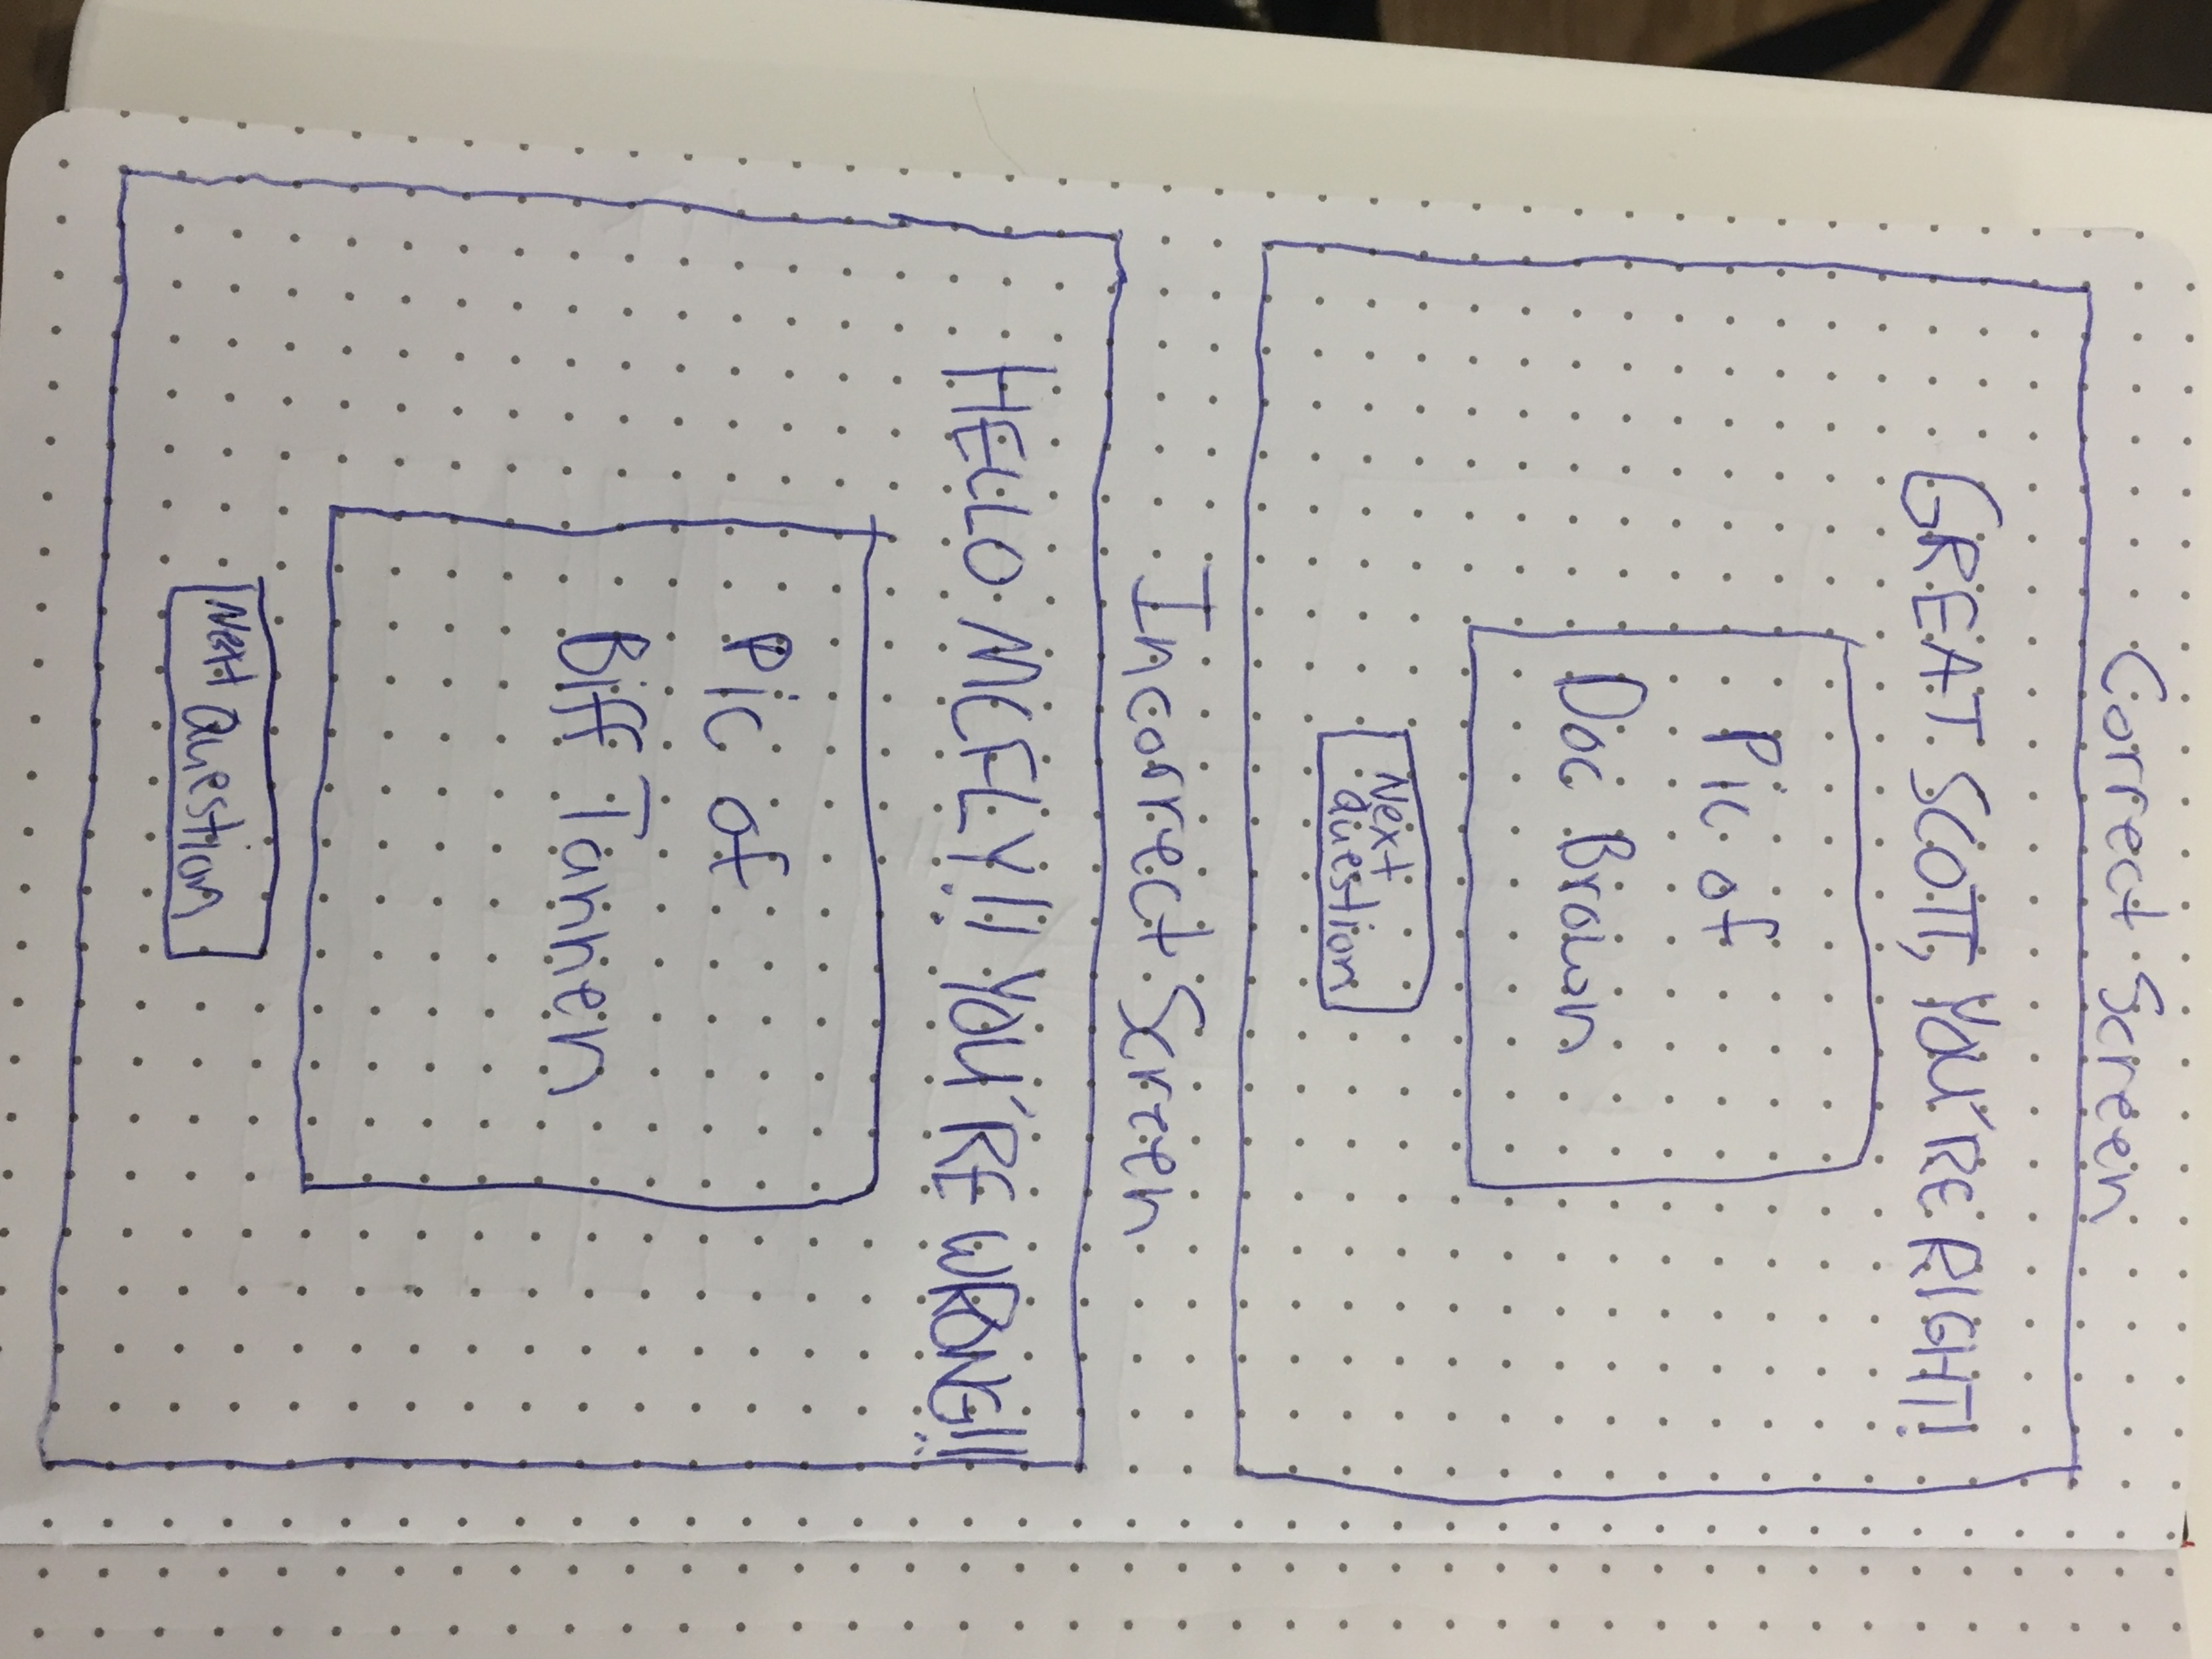 Correct Screen
GREAT SCOTT, YOU'RE RIGHT!
Pic of
Doc Brown
Next
Question
Incorrect Screen
HELLO MCFLY!! YOU'RE WRONG!!
Pic of
Biff Tannen
Next Question